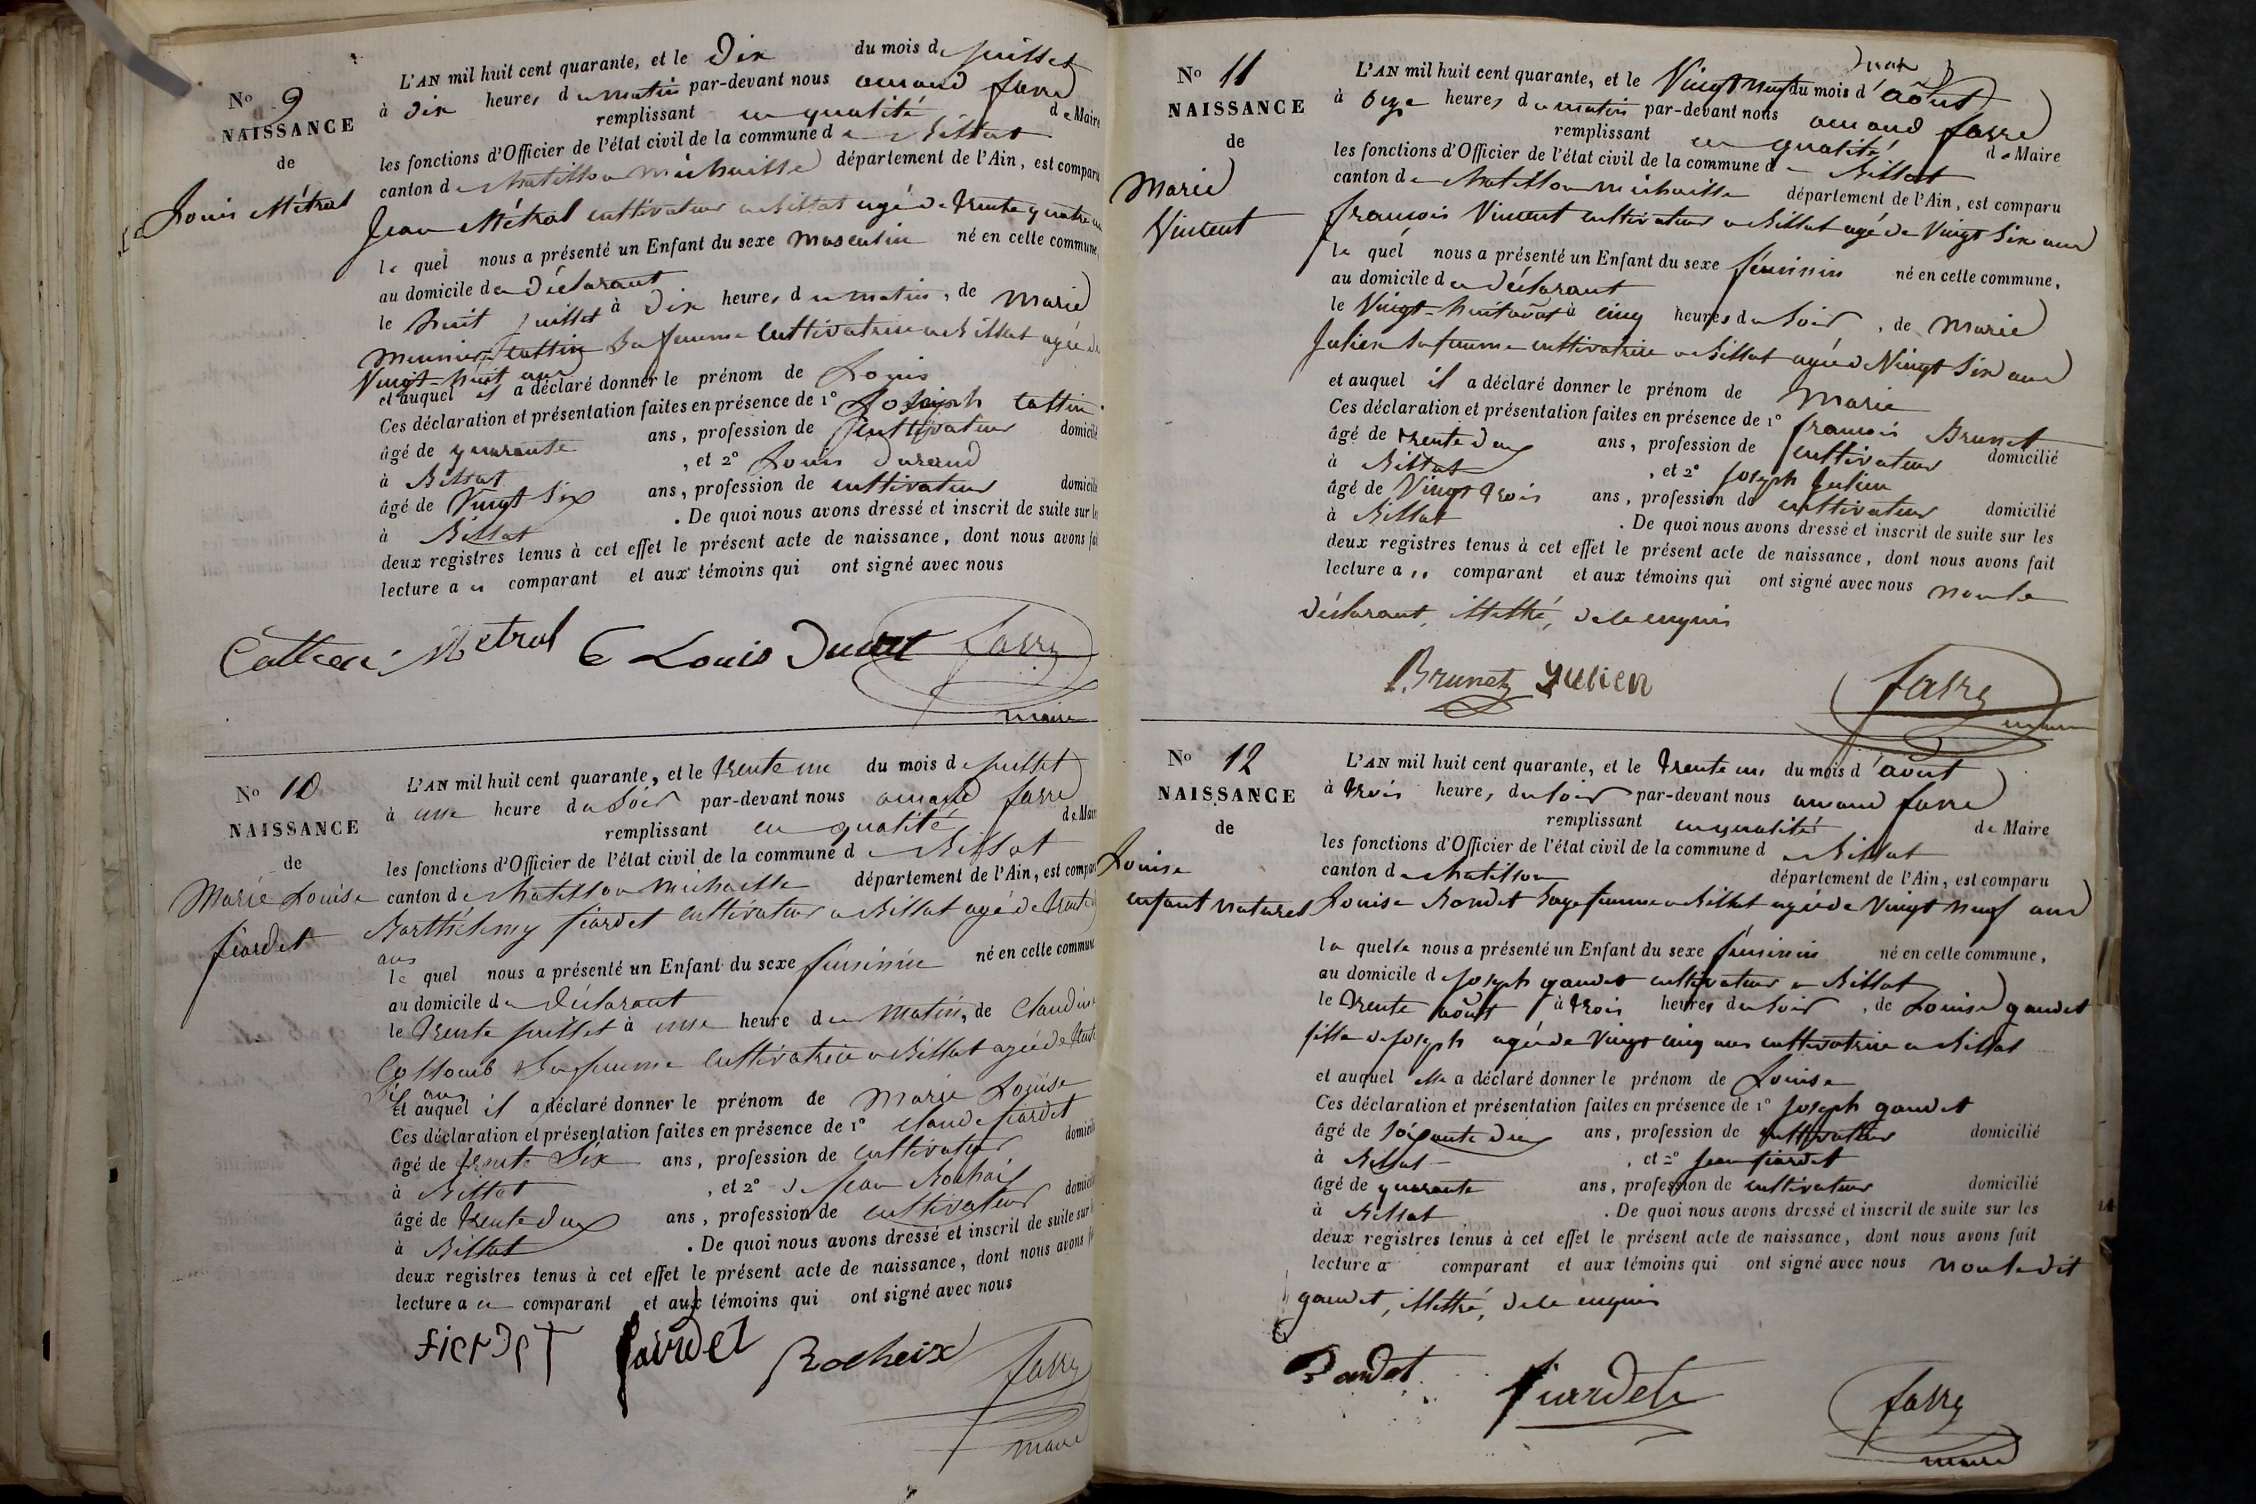 N° 9
NAISSANCE
de
Louis Métral
L'AN mil huit cent quarante, et le Dix du mois de juillet
à dix heures du matin par-devant nous amand favre
remplissant en qualité de Maire
les fonctions d'Officier de l'état civil de la commune de Billiat
canton de chatillon michaille département de l'Ain, est comparu
Jean Métral cultivateur a Billiat agé de trente quatre ans
le quel nous a présenté un Enfant du sexe masculin né en cette commune,
au domicile du déclarant
le huit juillet à dix heures du matin, de marie
meunier cattin Sa femme cultivatrice a Billiat agée de
Vingt-huit ans
et auquel il a déclaré donner le prénom de Louis
Ces déclaration et présentation faites en présence de 1° Joseph Cattin
âgé de quarante ans, profession de cultivateur domicilié
à Billiat, et 2° Louis durand
âgé de Vingt Six ans, profession de cultivateur domicilié
à Billiat. De quoi nous avons dressé et inscrit de suite sur les
deux registres tenus à cet effet le présent acte de naissance, dont nous avons fait
lecture au comparant et aux témoins qui ont signé avec nous
Métral Louis favre
maire
N° 10
NAISSANCE
de
Marie Louise
fiardet
L'AN mil huit cent quarante, et le trente un du mois de juillet
à une heure du Soir par-devant nous amand favre
remplissant en qualité de Maire
les fonctions d'Officier de l'état civil de la commune de Billiat
canton de chatillon michaille département de l'Ain, est comparu
Barthélemy fiardet cultivateur a Billiat agé de trente
ans
le quel nous a présenté un Enfant du sexe féminin né en cette commune
au domicile du déclarant
le trente juillet à une heure du matin, de Claudine
Colomb Sa femme cultivatrice a Billiat agée de trente
Six ans
et auquel il a déclaré donner le prénom de Marie Louise
Ces déclaration et présentation faites en présence de 1° claude fiardet
âgé de trente Six ans, profession de cultivateur domicilié
à Billiat, et 2° Jean
âgé de trente deux ans, profession de cultivateur domicilié
à Billiat. De quoi nous avons dressé et inscrit de suite sur
deux registres tenus à cet effet le présent acte de naissance, dont nous avons
lecture au comparant et aux témoins qui ont signé avec nous
fierdet Rocheix favre
maire
N° 11
NAISSANCE
de
Marie
Vincent
L'AN mil huit cent quarante, et le Vingt neuf du mois d'août
à onze heures du matin par-devant nous amand favre
remplissant en qualité de Maire
les fonctions d'Officier de l'état civil de la commune de Billiat
canton de chatillon michaille département de l'Ain, est comparu
françois Vincent cultivateur a Billiat agé de Vingt Six ans
le quel nous a présenté un Enfant du sexe féminin né en cette commune,
au domicile du déclarant
le Vingt-huit août à cinq heures du Soir, de Marie
Julien Sa femme cultivatrice a Billiat agée de Vingt Six ans
et auquel il a déclaré donner le prénom de Marie
Ces déclaration et présentation faites en présence de 1° françois Brunet
âgé de trente deux ans, profession de cultivateur domicilié
à Billiat, et 2° Joseph Julien
âgé de Vingt trois ans, profession de cultivateur domicilié
à Billiat. De quoi nous avons dressé et inscrit de suite sur les
deux registres tenus à cet effet le présent acte de naissance, dont nous avons fait
lecture au comparant et aux témoins qui ont signé avec nous non le
déclarant, illettré, de ce enquis
Brunet Julien favre
maire
N° 12
NAISSANCE
de
Louise
enfant naturel
L'AN mil huit cent quarante, et le trente un du mois d'août
à trois heures du soir par-devant nous amand favre
remplissant en qualité de Maire
les fonctions d'Officier de l'état civil de la commune de Billiat
canton de chatillon département de l'Ain, est comparu
Louise Sage femme a Billiat agée de Vingt neuf ans
la quelle nous a présenté un Enfant du sexe féminin né en cette commune,
au domicile de Joseph gaudet cultivateur a Billiat
le trente août à trois heures du Soir, de Louise gaudet
fille de Joseph agée de Vingt cinq ans cultivatrice a Billiat
et auquel elle a déclaré donner le prénom de Louise
Ces déclaration et présentation faites en présence de 1° Joseph gaudet
âgé de Soixante deux ans, profession de cultivateur domicilié
à Billiat, et 2° Jean fiardet
âgé de quarante ans, profession de cultivateur domicilié
à Billiat. De quoi nous avons dressé et inscrit de suite sur les
deux registres tenus à cet effet le présent acte de naissance, dont nous avons fait
lecture a comparant et aux témoins qui ont signé avec nous non le dit
gaudet, illettré, de ce enquis
fiardet favre
maire